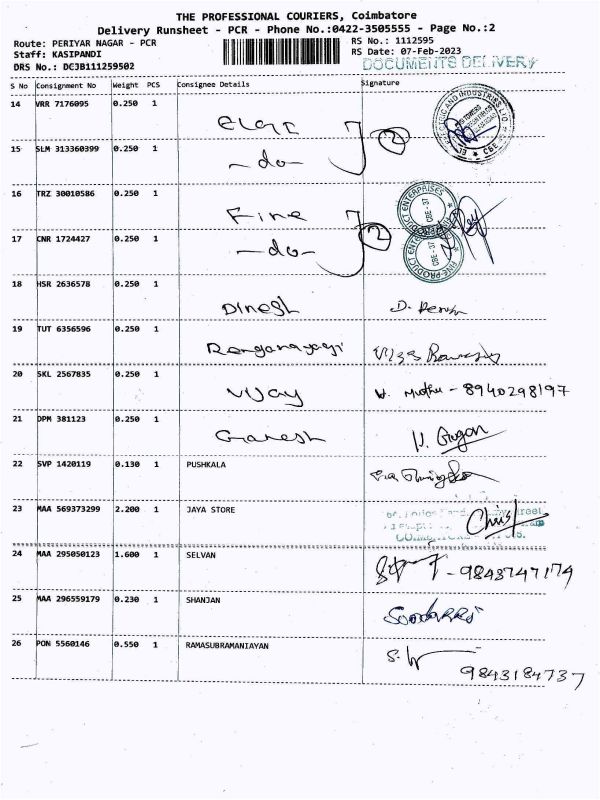 THE PROFESSIONAL COURIERS, Coimbatore
Delivery Runsheet - PCR - Phone No.:0422-3505555 - Page No.:2
Route: PERIYAR NAGAR - PCR RS No.: 1112595
Staff: KASIPANDI RS Date: 07-Feb-2023
DRS No.: DCJB111259502 DOCUMENTS DELIVERY
S No Consignment No Weight PCS Consignee Details Signature
14 VRR 7176095 0.250 1 ELGI
15 SLM 313360399 0.250 1 -do- 2
16 TRZ 30010586 0.250 1 Fine
17 CNR 1724427 0.250 1 -do- 2
18 HSR 2636578 0.250 1 Dinesh
19 TUT 6356596 0.250 1 Ranganayagi
20 SKL 2567835 0.250 1 Vijay - 8940298197
21 DPM 381123 0.250 1 Ganesh
22 SVP 1420119 0.130 1 PUSHKALA
23 MAA 569373299 2.200 1 JAYA STORE
24 MAA 295050123 1.600 1 SELVAN - 9843747174
25 MAA 296559179 0.230 1 SHANJAN
26 PON 5560146 0.550 1 RAMASUBRAMANIAYAN 9843184737